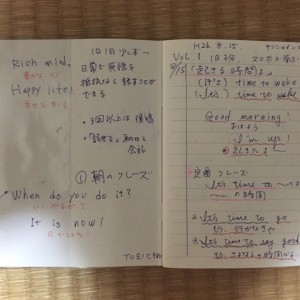 Rich mind,
Happy life!
1日1分しず〜
日常の英語を
抵抗なく話すことが
できる
・3回以上は復唱
①朝のフレーズ
When do you do it?
It is now!
TOEIC
H26. 8. 15.
VOL. 1 1日1分
8/15 「起きる時間よ」
(It's) time to wake
(It's) time to wake
Good morning!
おはよう
I'm up!
起きたよ
定番フレーズ
It's time to 〜
〜の時間
2. It's time to go
3. It's time to say good